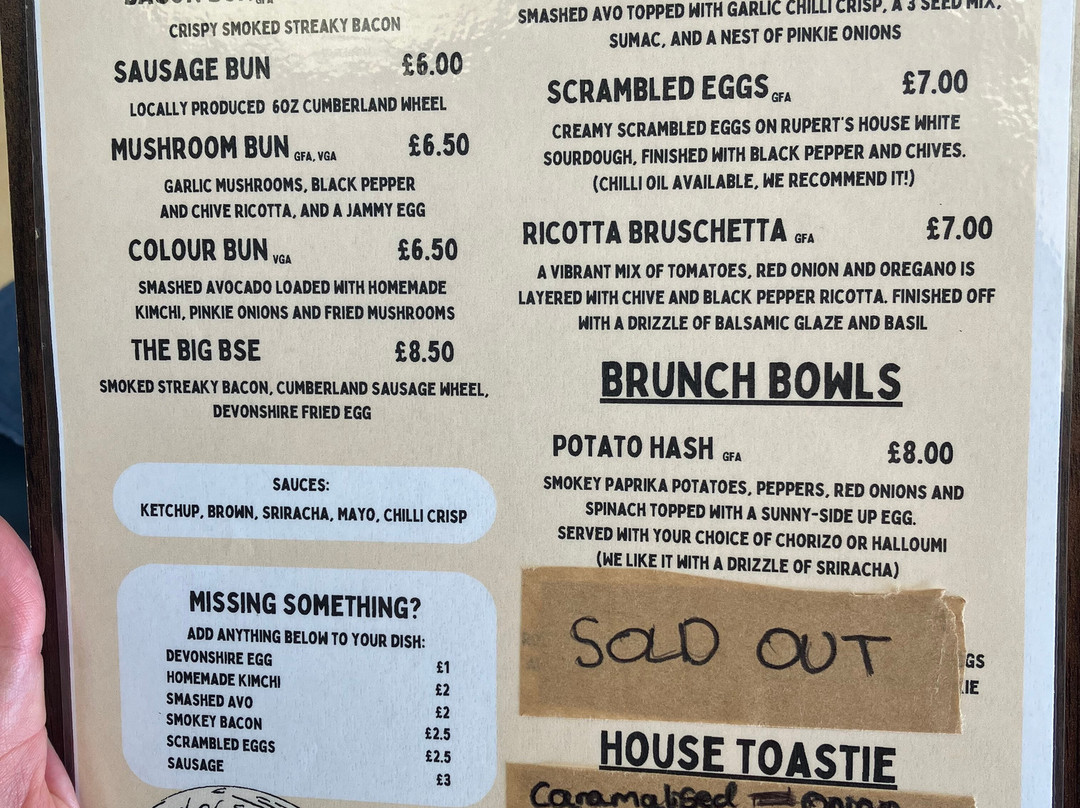 BACON BUN GFA
CRISPY SMOKED STREAKY BACON
SAUSAGE BUN £6.00
LOCALLY PRODUCED 6OZ CUMBERLAND WHEEL
MUSHROOM BUN GFA, VGA £6.50
GARLIC MUSHROOMS, BLACK PEPPER
AND CHIVE RICOTTA, AND A JAMMY EGG
COLOUR BUN VGA £6.50
SMASHED AVOCADO LOADED WITH HOMEMADE
KIMCHI, PINKIE ONIONS AND FRIED MUSHROOMS
THE BIG BSE £8.50
SMOKED STREAKY BACON, CUMBERLAND SAUSAGE WHEEL,
DEVONSHIRE FRIED EGG
SAUCES:
KETCHUP, BROWN, SRIRACHA, MAYO, CHILLI CRISP
MISSING SOMETHING?
ADD ANYTHING BELOW TO YOUR DISH:
DEVONSHIRE EGG £1
HOMEMADE KIMCHI £2
SMASHED AVO £2
SMOKEY BACON £2.5
SCRAMBLED EGGS £2.5
SAUSAGE £3
SMASHED AVO TOPPED WITH GARLIC CHILLI CRISP, A 3 SEED MIX,
SUMAC, AND A NEST OF PINKIE ONIONS
SCRAMBLED EGGS GFA £7.00
CREAMY SCRAMBLED EGGS ON RUPERT'S HOUSE WHITE
SOURDOUGH, FINISHED WITH BLACK PEPPER AND CHIVES.
(CHILLI OIL AVAILABLE, WE RECOMMEND IT!)
RICOTTA BRUSCHETTA GFA £7.00
A VIBRANT MIX OF TOMATOES, RED ONION AND OREGANO IS
LAYERED WITH CHIVE AND BLACK PEPPER RICOTTA. FINISHED OFF
WITH A DRIZZLE OF BALSAMIC GLAZE AND BASIL
BRUNCH BOWLS
POTATO HASH GFA £8.00
SMOKEY PAPRIKA POTATOES, PEPPERS, RED ONIONS AND
SPINACH TOPPED WITH A SUNNY-SIDE UP EGG.
SERVED WITH YOUR CHOICE OF CHORIZO OR HALLOUMI
(WE LIKE IT WITH A DRIZZLE OF SRIRACHA)
SOLD OUT
GS
IE
HOUSE TOASTIE
Caramalised onion